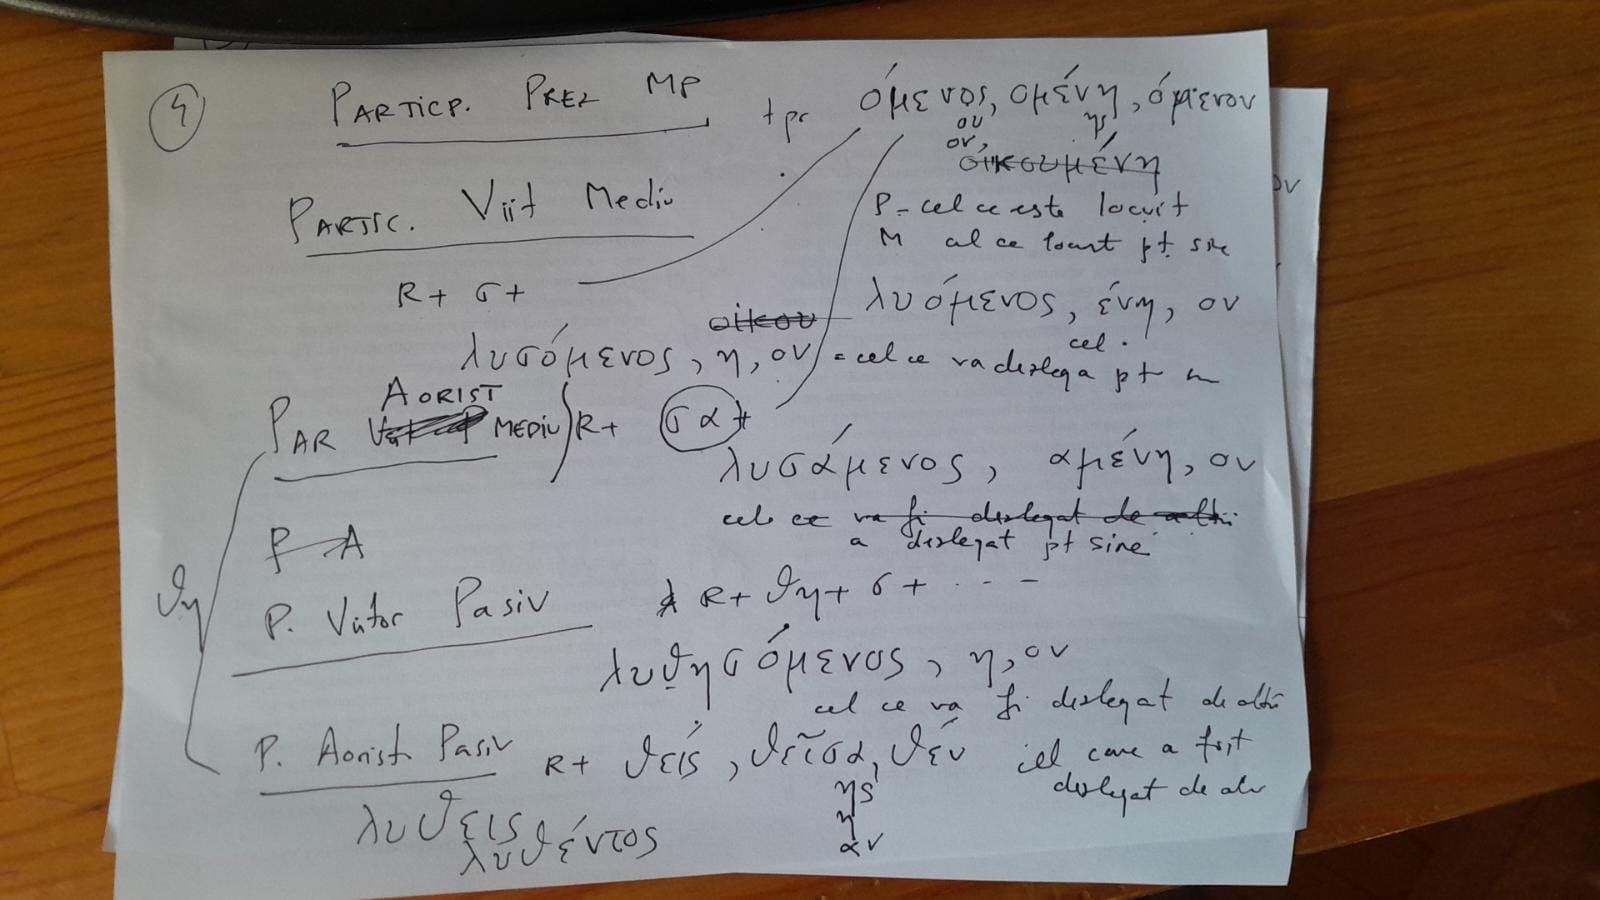 4
PARTICP. PREZ MP + pr όμενος, ομένη, όμενον
ου ης
ον,
οἰκουμένη
P - cel ce este locuit
PARTIC. Viit Mediu
M cel ce locuit pt sine
R + σ +
λυόμενος, ένη, ον
οἰκου
cel.
λυσόμενος, η, ον = cel ce va dezlega pt
AORIST
PAR MEDIU R + σα +
λυσάμενος, αμένη, ον
cel ce va fi dezlegat de altii
a dezlegat pt sine
P A
θη
P. Viitor Pasiv R + θη + σ + . . .
λυθησόμενος, η, ον
cel ce va fi dezlegat de altii
P. Aorist Pasiv R + θείς, θεῖσα, θέν cel care a fost
dezlegat de
ης
η
αν
λυθεις
λυθέντος